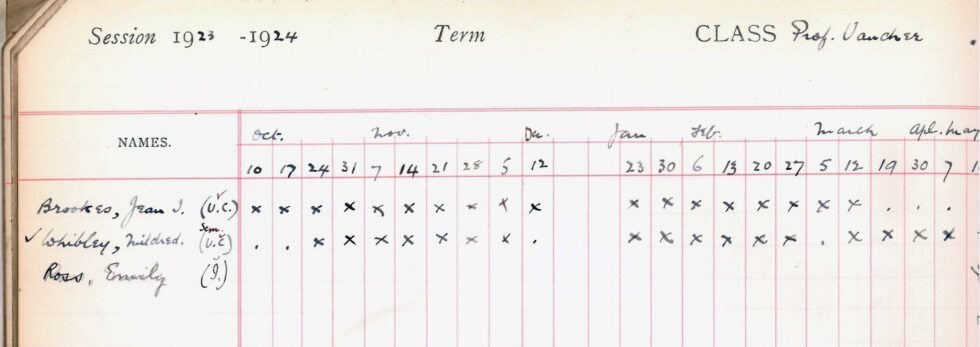 Session 1923 -1924 Term CLASS Prof. Vaucher
Oct. Nov. Dec. Jan Feb. March Apl. May
NAMES. 10 17 24 31 7 14 21 28 5 12 23 30 6 13 20 27 5 12 19 30 7
Brookes, Jean I. (U.C.) x x x x x x x x x x x x x x x x x x . . .
Sem.
✓ Whibley, Mildred. (U.C) . . x x x x x x x . x x x x x x . x x x x
Ross, Emily (I.)